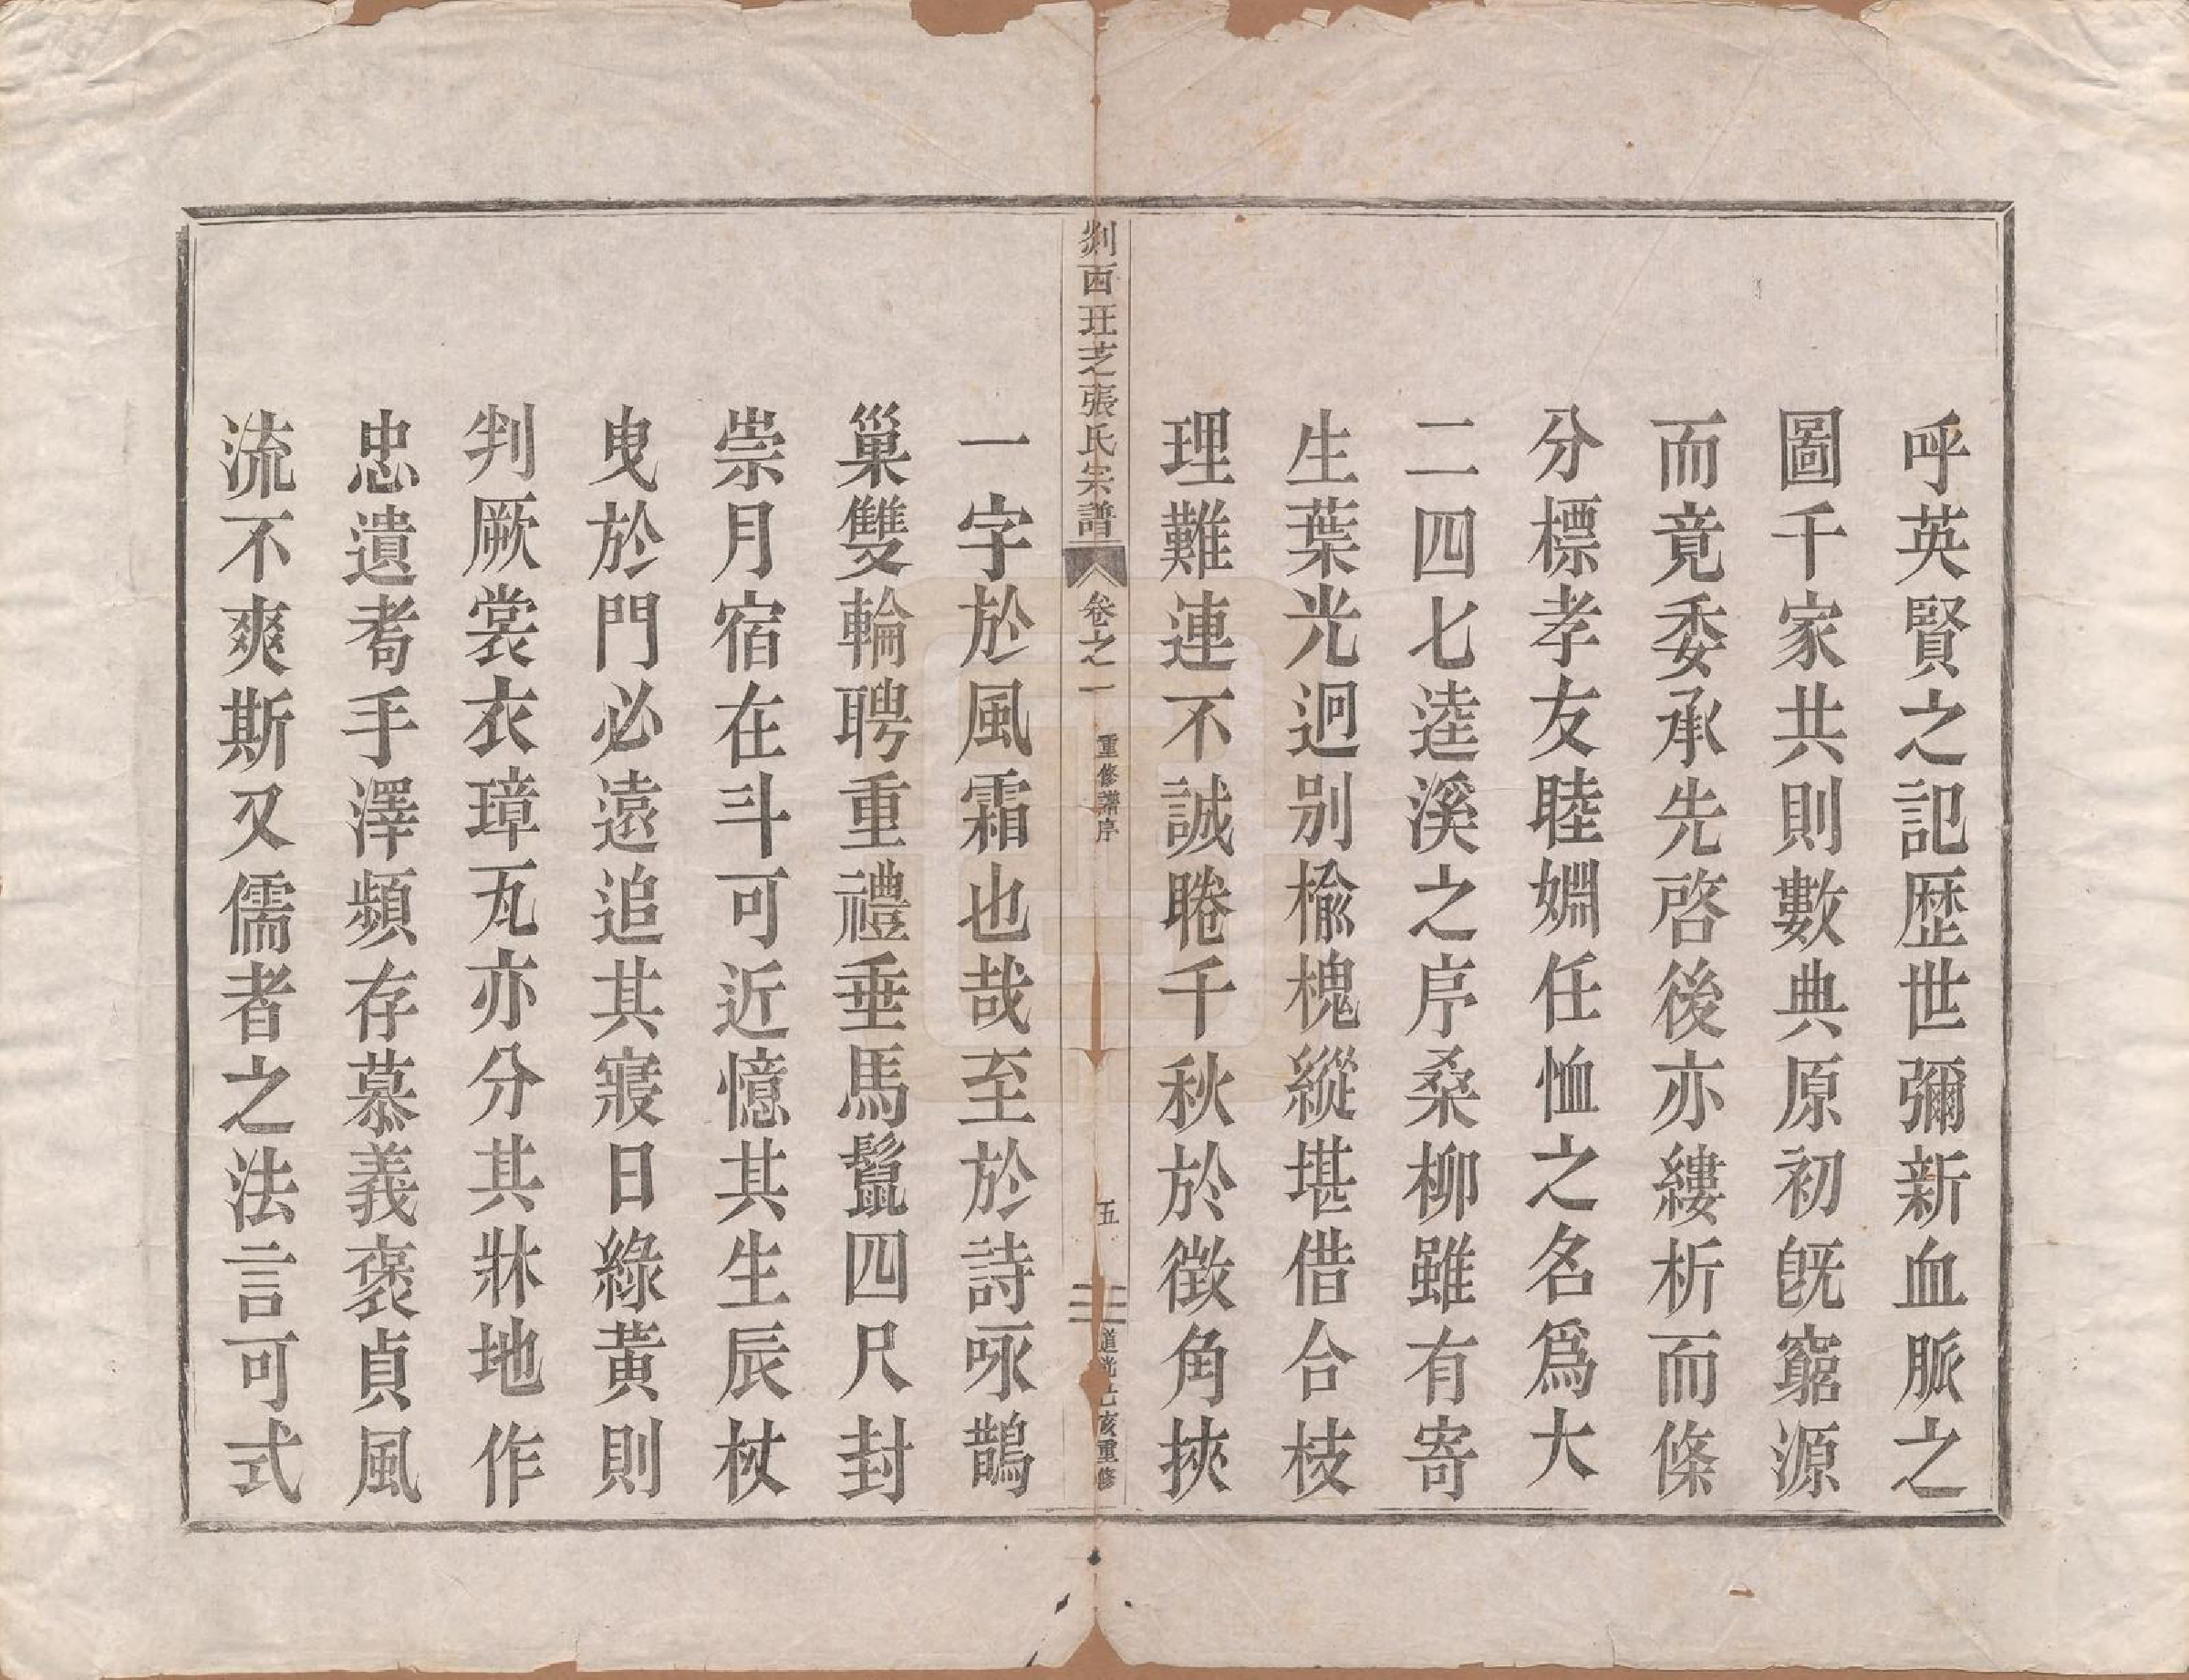 呼英賢之記歴世彌新血脈之
圖千家共則數典原初旣窮源
而竟委承先啓後亦縷析而條
分標孝友睦婣任恤之名爲大
二四七逵溪之序桑柳雖有寄
生葉光迥别楡槐縱堪借合枝
理難連不誠睠千秋於徴角挾
剡西珏芝張氏宗譜
卷之一
重修譜序
五
道光己亥重修
一字於風霜也哉至於詩咏鵲
巢雙輪聘重禮垂馬鬣四尺封
崇月宿在斗可近憶其生辰杖
曳於門必遠追其寢日綠黃則
判厥裳衣璋瓦亦分其牀地作
忠遺耇手澤頻存慕義褒貞風
流不爽斯又儒者之法言可式